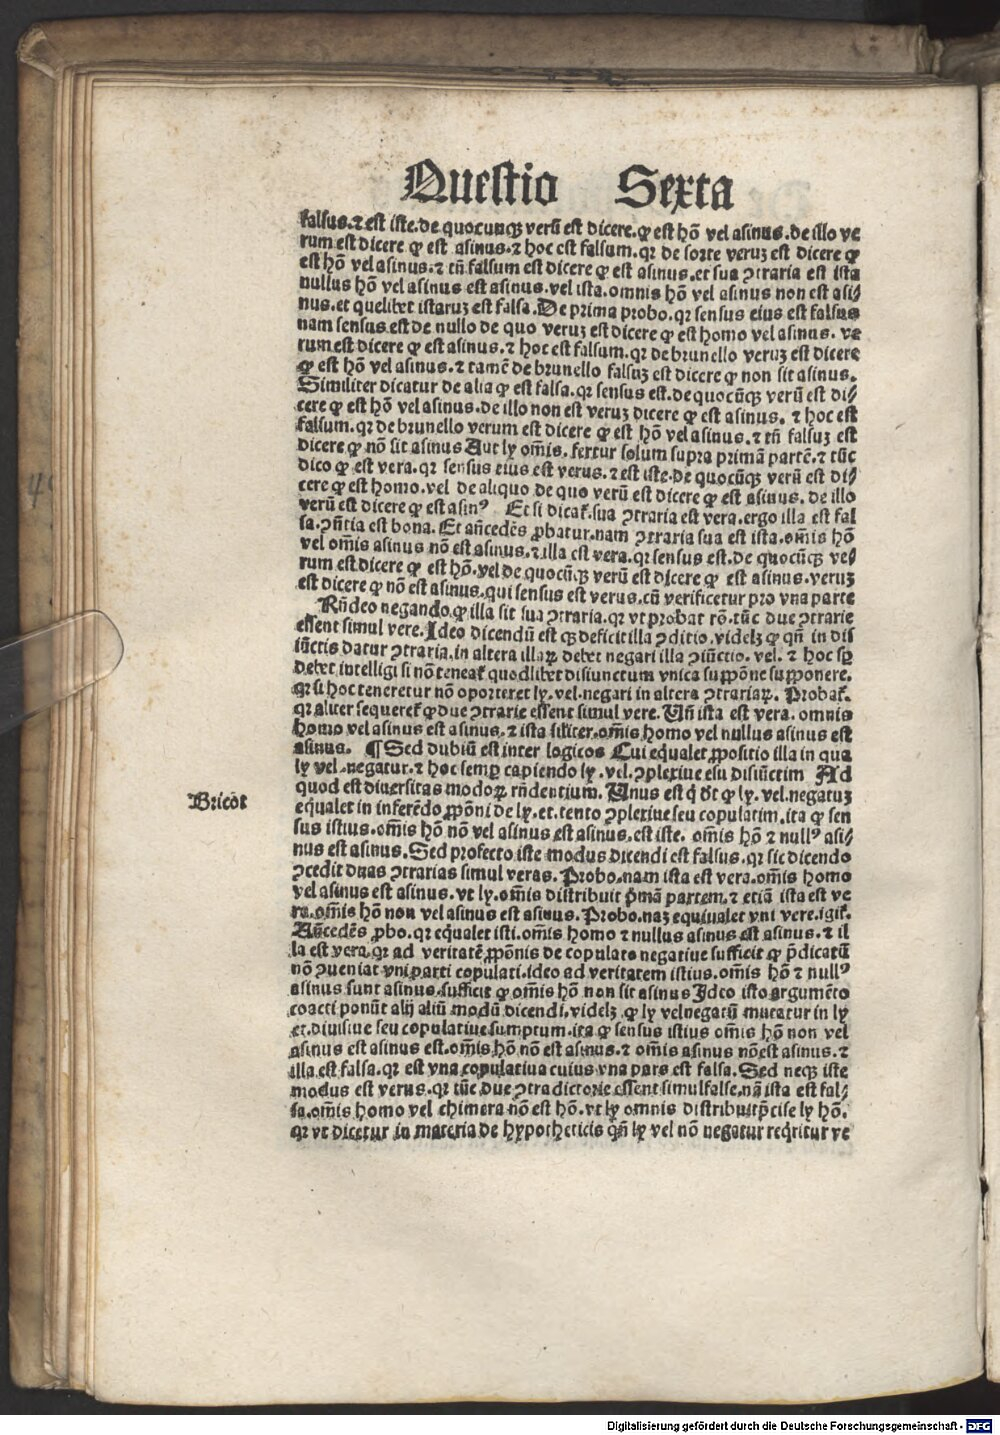 Questio Sexta
falsus.⁊ est iste.de quocunqꝫ verũ est dicere.ꝙ est hõ vel asinus.de illo ve
rum est dicere ꝙ est asinus.⁊ hoc est falsum.qꝛ de sorte veruꝫ est dicere ꝙ
est hõ vel asinus.⁊ tñ falsum est dicere ꝙ est asinus.et sua ꝯtraria est ista
nullus hõ vel asinus est asinus.vel ista.omnis hõ vel asinus non est asi⸗
nus.et quelibet istaruꝫ est falsa.De prima probo.qꝛ sensus eius est falsus
nam sensus est de nullo de quo veruꝫ est dicere ꝙ est homo vel asinus. ve
rum est dicere ꝙ est asinus.⁊ hoc est falsum.qꝛ de brunello veruꝫ est dicere
ꝙ est hõ vel asinus.⁊ tamẽ de brunello falsuꝫ est dicere ꝙ non sit asinus.
Similiter dicatur de alia ꝙ est falsa.qꝛ sensus est.de quocũqꝫ verũ est di⸗
cere ꝙ est hõ vel asinus.de illo non est veruꝫ dicere ꝙ est asinus. ⁊ hoc est
falsum.qꝛ de brunello verum est dicere ꝙ est hõ vel asinus.⁊ tñ falsuꝫ est
dicere ꝙ nõ sit asinus Aut ly om̃is.fertur solum supra primã partẽ.⁊ tũc
dico ꝙ est vera.qꝛ sensus eius est verus.⁊ est iste.de quocũqꝫ verũ est di⸗
cere ꝙ est homo.vel de aliquo de quo verũ est dicere ꝙ est asinus. de illo
verũ est dicere ꝙ est asinꝰ Et si dicat̃.sua ꝯtraria est vera.ergo illa est fal
sa.ꝯñtia est bona. Et añcedẽs ꝓbatur.nam ꝯtraria sua est ista.om̃is hõ
vel om̃is asinus nõ est asinus.⁊ illa est vera.qꝛ sensus est.de quocũqꝫ ve⸗
rum est dicere ꝙ est hõ.vel de quocũqꝫ verũ est dicere ꝙ est asinus.veruꝫ
est dicere ꝙ nõ est asinus.qui sensus est verus.cũ verificetur pro vna parte
Rñdeo negando.ꝙ illa sit sua ꝯtraria.qꝛ vt probat rõ.tũc due ꝯtrarie
essent simul vere.Ideo dicendũ est qꝫ deficit illa ꝯditio.videlꝫ ꝙ qñ in dis
iũctis datur ꝯtraria.in altera illaꝝ debet negari illa ꝯiũctio.vel. ⁊ hoc sꝑ
debet intelligi si nõ teneat̃ quodlibet disiunctum vnica suꝓõne suꝓponere.
qꝛ si hoc teneretur nõ oporteret ly.vel.negari in altera ꝯtrariaꝝ. Probat̃.
qꝛ aliter sequeret̃ ꝙ due ꝯtrarie essent simul vere.Uñ ista est vera. omnis
homo vel asinus est asinus.⁊ ista siliter.om̃is homo vel nullus asinus est
asinus. ¶ Sed dubiũ est inter logicos Cui eq̃ualet ꝓpositio illa in qua
ly vel.negatur.⁊ hoc semꝑ capiendo ly.vel.ꝯplexiue seu disiũctim Ad
quod est diuersitas modoꝝ rñdentium. Unus est q̇ dt̃ ꝙ ly.vel.negatuꝫ
eq̃ualet in inferẽdo ꝓpõni de ly.et.tento ꝯplexiue seu copulatim.ita ꝙ sen
sus istius.om̃is hõ nõ vel asinus est asinus.est iste. om̃is hõ ⁊ nullꝰ asi⸗
nus est asinus.Sed profecto iste modus dicendi est falsus.qꝛ sic dicendo
ꝯcedit duas ꝯtrarias simul veras.Probo.nam ista est vera.om̃is homo
vel asinus est asinus.vt ly.om̃is distribuit p̃mã partem.⁊ etiã ista est ve
ra.om̃is hõ non vel asinus est asinus.Probo.naꝫ equiualet vni vere.igit̃.
Añcedẽs ꝓbo.qꝛ eq̃ualet isti.om̃is homo ⁊ nullus asinus est asinus.⁊ il
la est vera.qꝛ ad veritatẽ ꝓpõnis de copulato negatiue sufficit ꝙ p̃dicatũ
nõ ꝯueniat vni parti copulati.ideo ad veritatem istius.om̃is hõ ⁊ nullꝰ
asinus sunt asinus.sufficit ꝙ om̃is hõ non sit asinus Ideo isto argumẽto
coacti ponũt alij aliũ modũ dicendi.videlꝫ ꝙ ly velnegatũ mutatur in ly
et.diuisiue seu copulatiue sumptum.ita ꝙ sensus istius om̃is hõ non vel
asinus est asinus est.om̃is hõ nõ est asinus.⁊ om̃is asinus nõest asinus.⁊
illa est falsa.qꝛ est vna copulatiua cuius vna pars est falsa.Sed neqꝫ iste
modus est verus.qꝛ tũc due ꝯtradictorie essent simul false.nã ista est fal⸗
sa.om̃is homo vel chimera nõ est hõ.vt ly omnis distribuit p̃cise ly hõ.
qꝛ vt dicetur in materia de hypotheticis qñ ly vel nõ negatur req̇ritur ve
Bricot
Digitalisierung gefördert durch die Deutsche Forschungsgemeinschaft - DFG